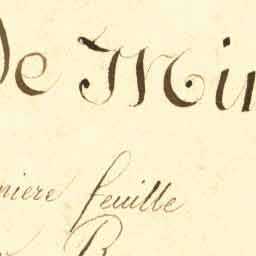 de Min
niere feuille